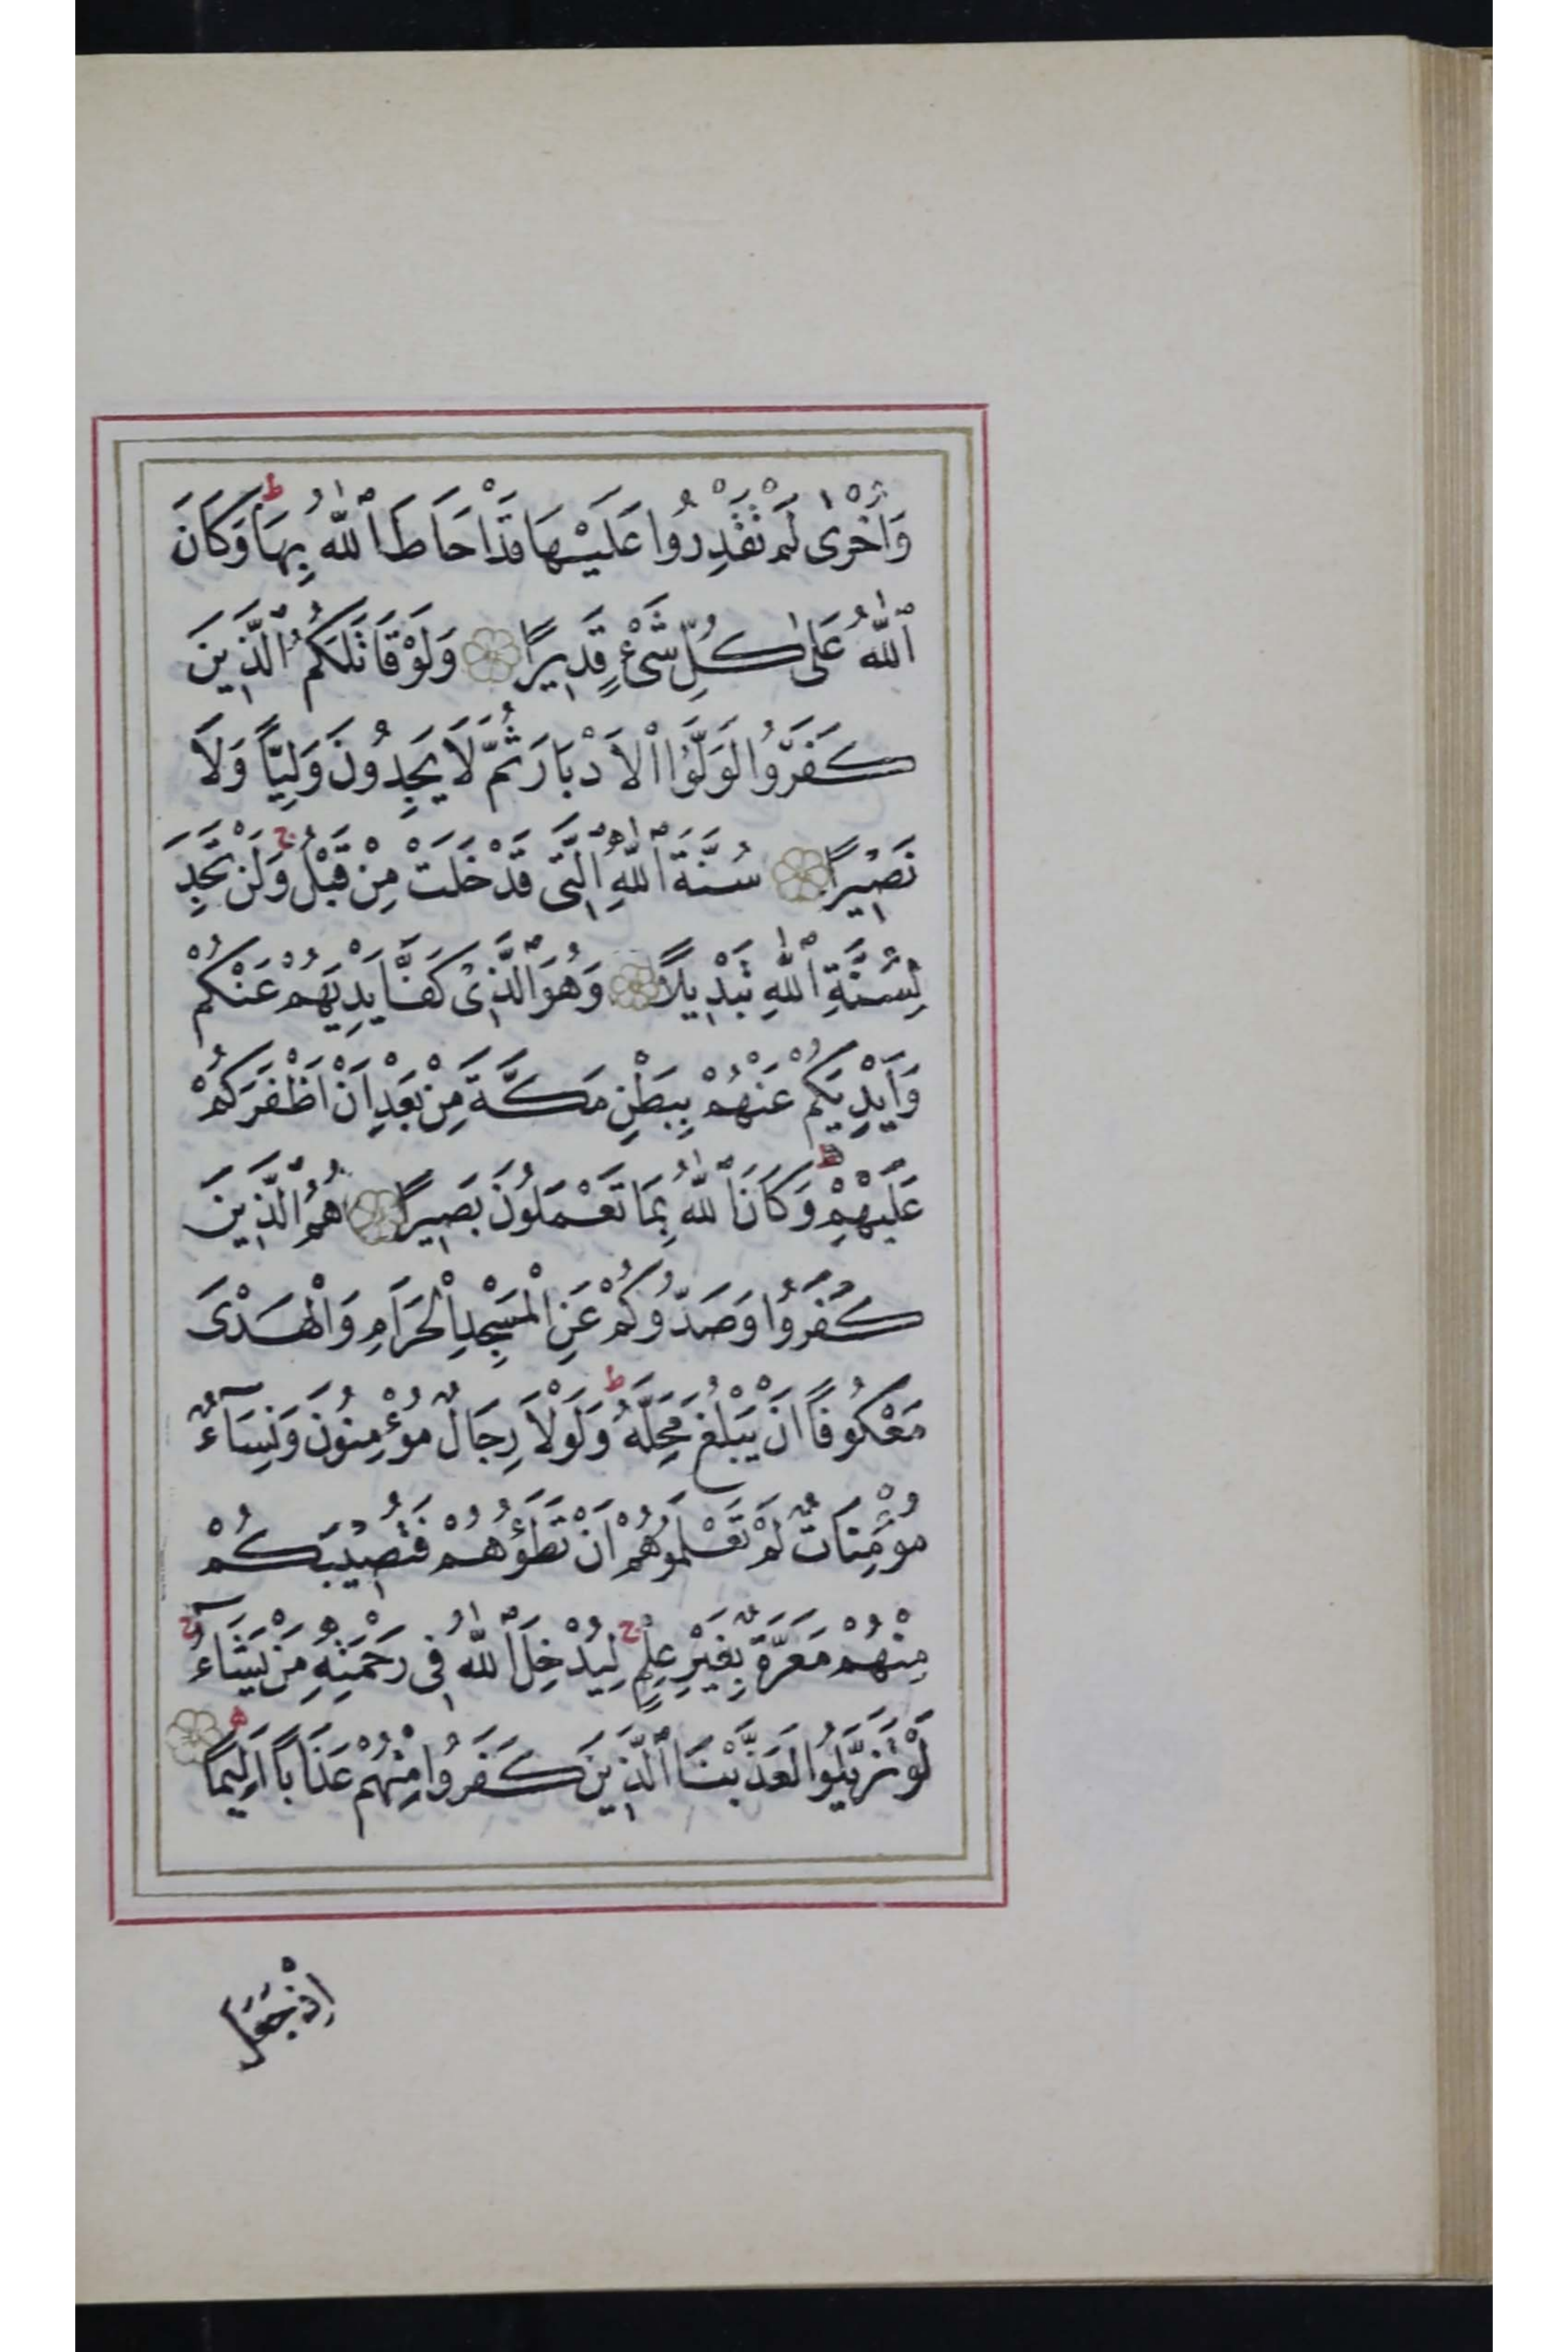 وَاُخْرٰى لَمْ تَقْدِرُوا عَلَيْهَا قَدْ اَحَاطَ ٱللّٰهُ بِهَا ط وَكَانَ
ٱللّٰهُ عَلٰى كُلِّ شَىْءٍ قَدِيرًا وَلَوْ قَاتَلَكُمُ ٱلَّذِينَ
كَفَرُوا لَوَلَّوُا ٱلْاَدْبَارَ ثُمَّ لَا يَجِدُونَ وَلِيًّا وَلَا
نَصِيرًا سُنَّةَ ٱللّٰهِ ٱلَّتِى قَدْ خَلَتْ مِنْ قَبْلُ ج وَلَنْ تَجِدَ
لِسُنَّةِ ٱللّٰهِ تَبْدِيلًا وَهُوَ ٱلَّذِى كَفَّ اَيْدِيَهُمْ عَنْكُمْ
وَاَيْدِيَكُمْ عَنْهُمْ بِبَطْنِ مَكَّةَ مِنْ بَعْدِ اَنْ اَظْفَرَكُمْ
عَلَيْهِمْ ط وَكَانَ ٱللّٰهُ بِمَا تَعْمَلُونَ بَصِيرًا هُمُ ٱلَّذِينَ
كَفَرُوا وَصَدُّوكُمْ عَنِ الْمَسْجِدِ الْحَرَامِ وَالْهَدْىَ
مَعْكُوفًا اَنْ يَبْلُغَ مَحِلَّهُ ط وَلَوْلَا رِجَالٌ مُؤْمِنُونَ وَنِسَاۤءٌ
مُؤْمِنَاتٌ لَمْ تَعْلَمُوهُمْ اَنْ تَطَؤُهُمْ فَتُصِيبَكُمْ
مِنْهُمْ مَعَرَّةٌ بِغَيْرِ عِلْمٍ ج لِيُدْخِلَ ٱللّٰهُ فِى رَحْمَتِهِ مَنْ يَشَاۤءُ ج
لَوْ تَزَيَّلُوا لَعَذَّبْنَا ٱلَّذِينَ كَفَرُوا مِنْهُمْ عَذَابًا اَلِيمًا
اِذْ جَعَلَ